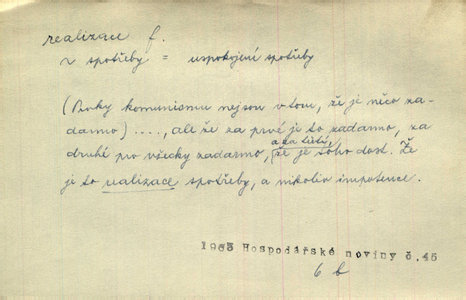 realizace f.
r spotřeby = uspokojení spotřeby
(Prvky komunismu nejsou v tom, že je něco za-
darmo) ...., ale že za prvé je to zadarmo, za
druhé pro všecky zadarmo, a za třetí, že je toho dost. Že
je to realizace spotřeby, a nikoliv impotence.
1963 Hospodářské noviny č.45
6 b